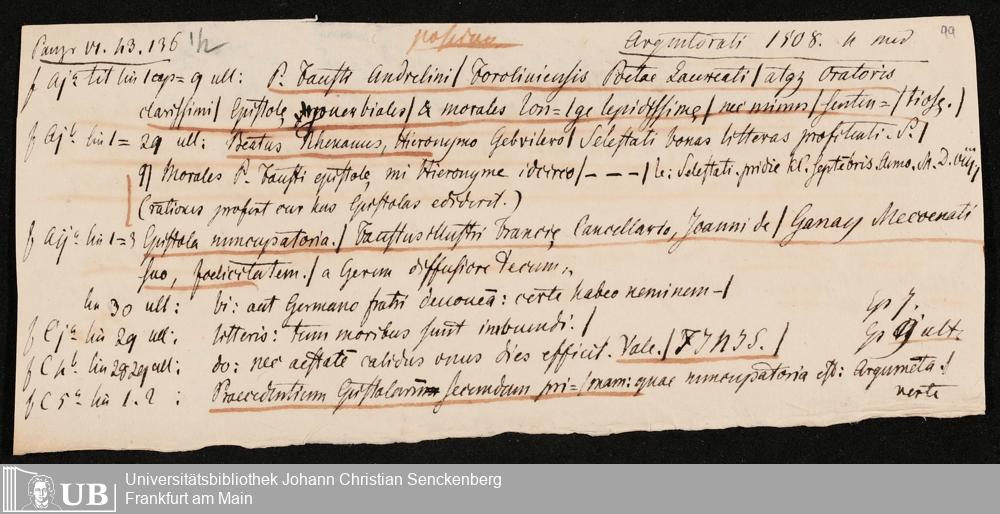 Panzr VI. 43. 136 1/2 Argentorati 1508. 4 med 99
f Aja tit lin 1 cap= 9 ull: P. Fausti Andrelini / Foroliuiensis Poetae Laureati / atqz oratoris
clarissimi / Epistolę prouerbiales / & morales lon= / gę lepidissimę / nec minus / senten= / tiosę. /
f Ajb lin 1= 29 ull: Beatus Rhenanus, Hieronymo Gebvilero / Selestati bonas litteras profitenti. S. /
9/ Morales P. Fausti epistolę, mi Hieronyme idcirco / – – – / le: Selestati. pridie kl. septebris. Anno. M. D. viij, /
(rationes profert cur has Epistolas ediderit.)
f Aija lin 1=3 Epistola nuncupatoria. / Faustus illustri Francię Cancellario, Joanni de / Ganay Mecoenati
suo, foelicitatem. / a Gerum diffusiore Tecum,,
lin 30 ull: bi: aut Germano fratri deuoueā: certe habeo neminem – /
f Cja lin 29 ull: litteris: tum moribus sunt imbuendi: /
f C4b. lin 28 29 ull: do: nec aestatē calidus unus dies efficit. Vale. / /
f C5a lin 1. 2 : Praecedentium Epistolarum secundum pri= / mam: quae nuncupatoria est: Argumēta. /
verte
Universitätsbibliothek Johann Christian Senckenberg
Frankfurt am Main
UB